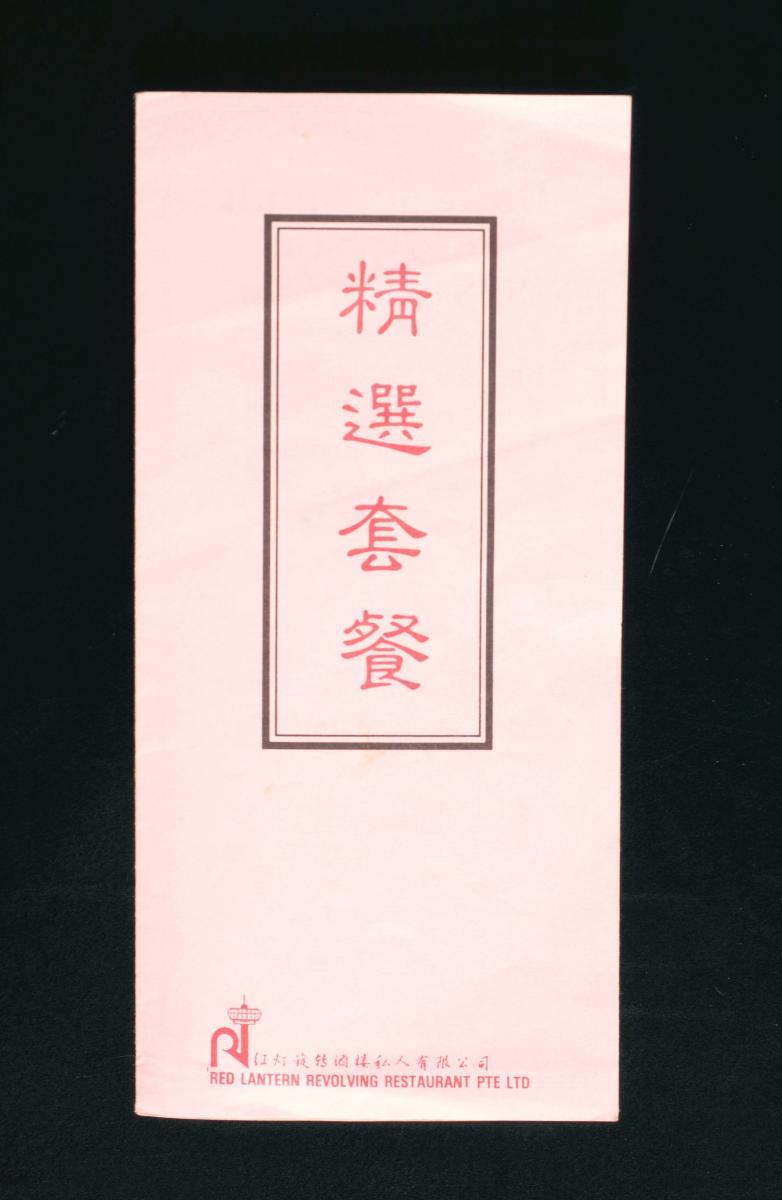 精選套餐
红灯旋转酒楼私人有限公司
RED LANTERN REVOLVING RESTAURANT PTE LTD